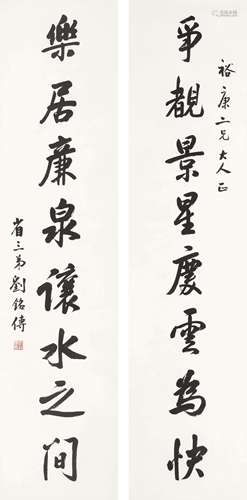 爭覩景星慶雲為快
裕康二兄大人正
樂居廉泉讓水之间
省三弟劉銘傳